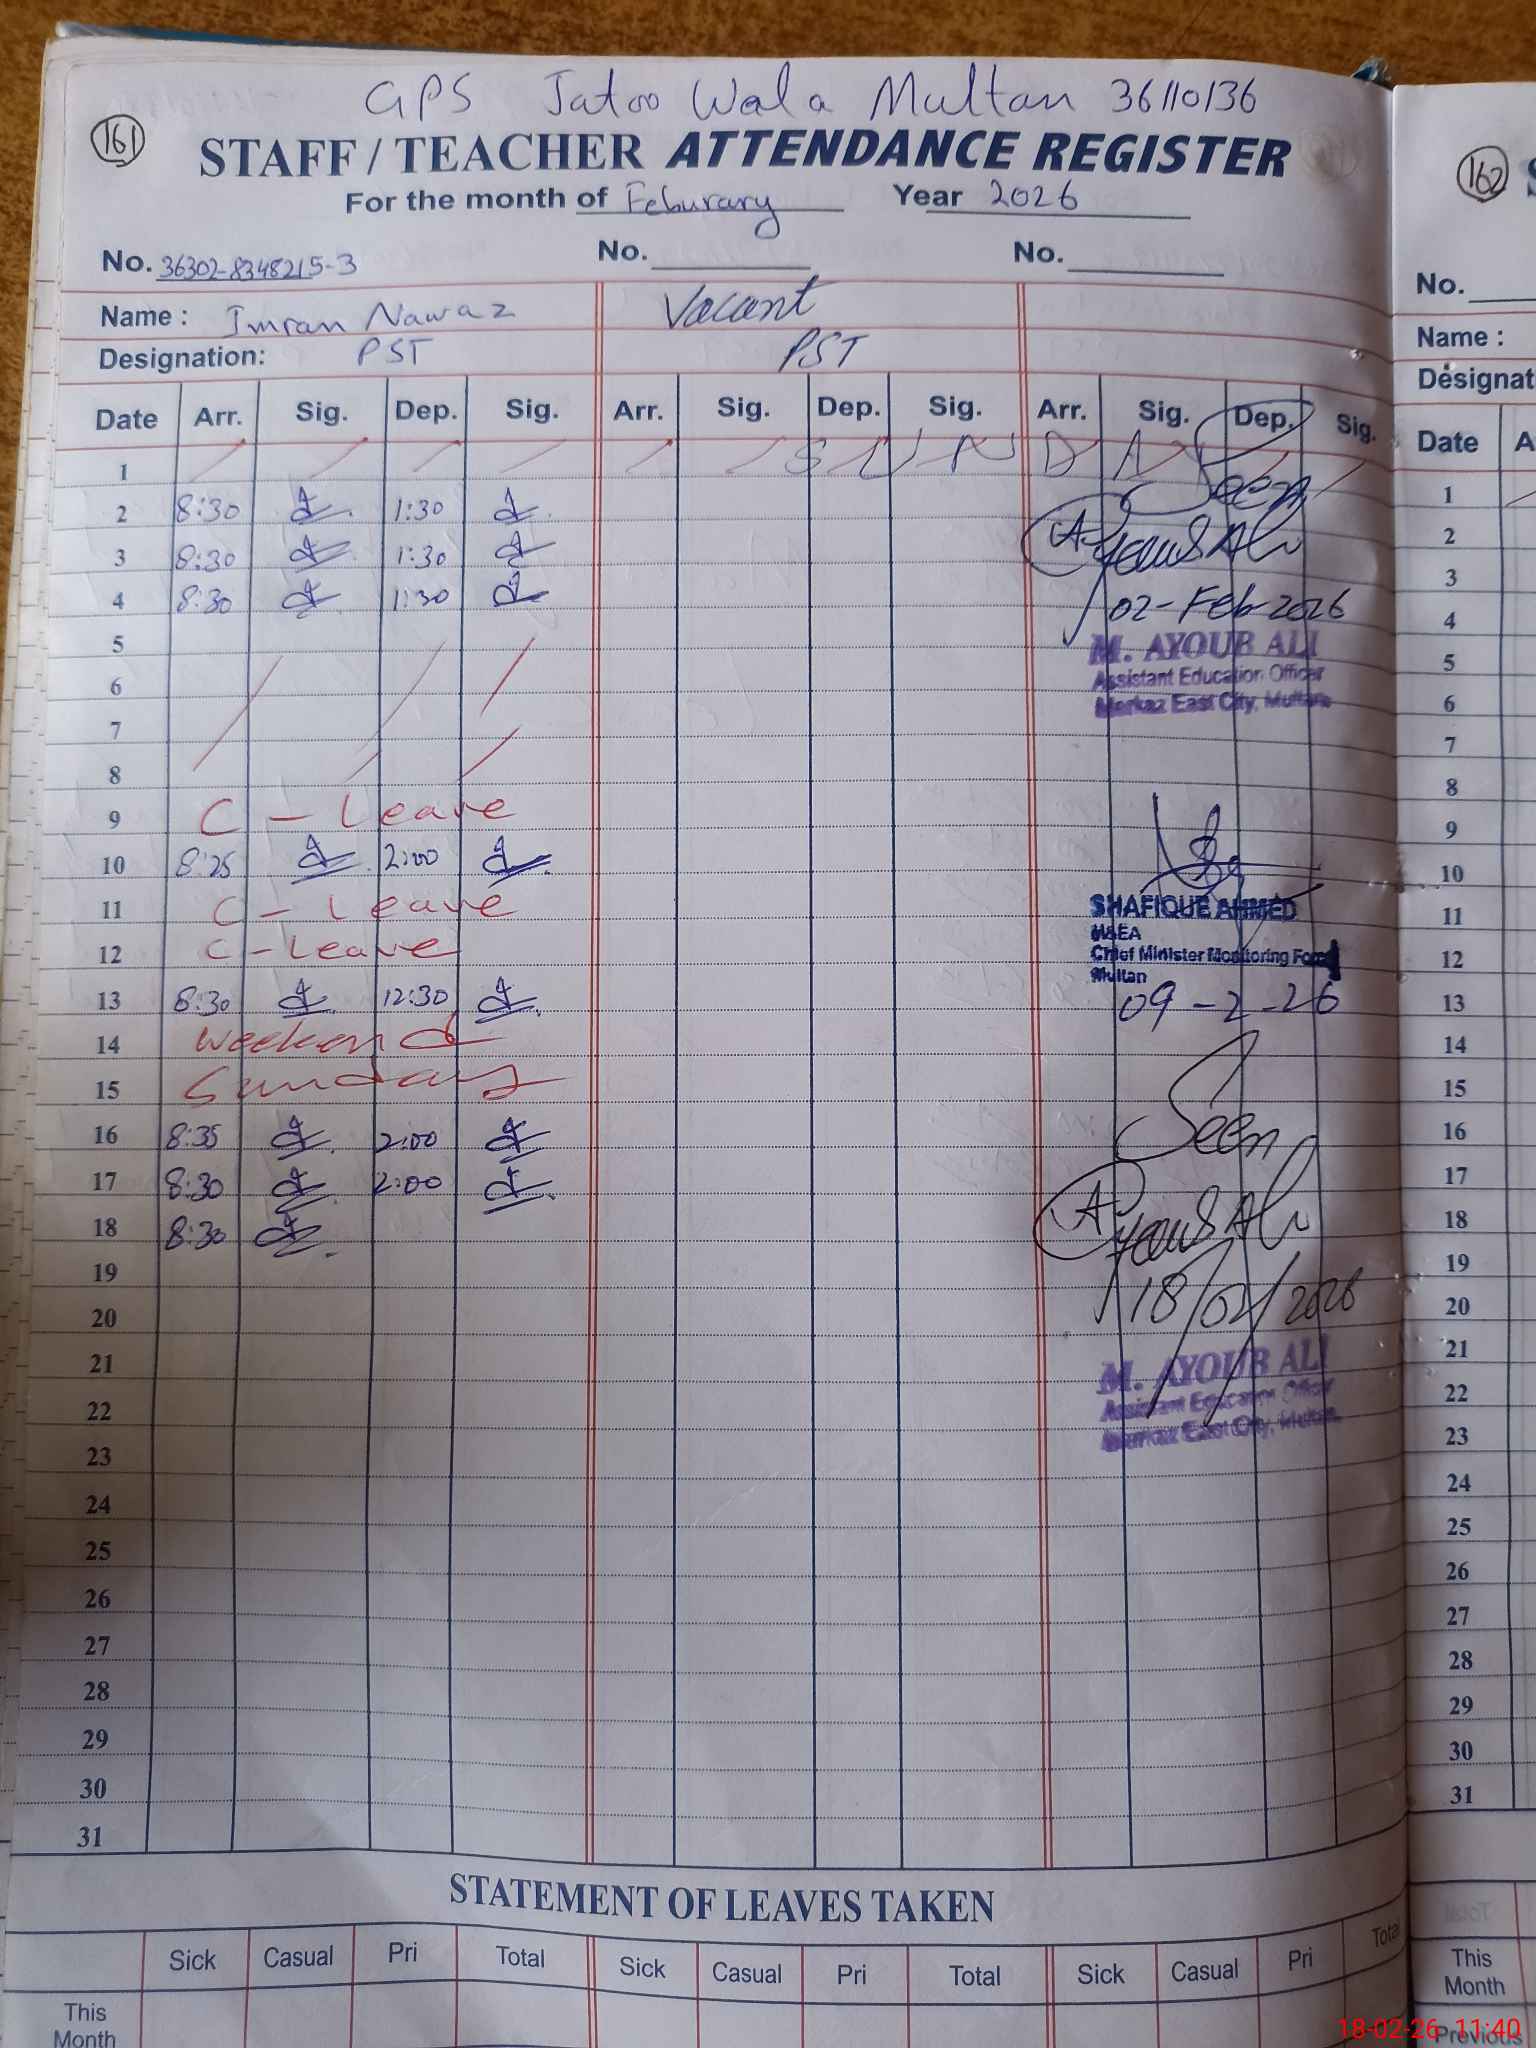 GPS Jatoo Wala Multan 36110136
161
STAFF / TEACHER ATTENDANCE REGISTER
For the month of Feburary Year 2026
No. 36302-8348215-3 No. No.
Name : Imran Nawaz Vacant
Designation: PST PST
Date Arr. Sig. Dep. Sig. Arr. Sig. Dep. Sig. Arr. Sig. Dep. Sig.
1 SUNDAY
Seen
2 8:30 1:30
3 8:30 1:30
Ayoub Ali
4 8:30 1:30
02-Feb-2026
5
M. AYOUB ALI
Assistant Education Officer
6
Markaz East City, Multan
7
8
9 C - Leave
10 8:25 2:00
11 C - Leave
SHAFIQUE AHMED
MEA
12 C - Leave
Chief Minister Monitoring Force
Multan
13 8:30 12:30
09-2-26
14 Weekend
15 Sunday
16 8:35 2:00
Seen
17 8:30 2:00
18 8:30
Ayoub Ali
19
18/02/2026
20
21
M. AYOUB ALI
Assistant Education Officer
22
Markaz East City, Multan
23
24
25
26
27
28
29
30
31
STATEMENT OF LEAVES TAKEN
Sick Casual Pri Total Sick Casual Pri Total Sick Casual Pri Total
This
Month
162
S
No.
Name :
Designat
Date A
1
2
3
4
5
6
7
8
9
10
11
12
13
14
15
16
17
18
19
20
21
22
23
24
25
26
27
28
29
30
31
This
Month
Previous
18-02-26 11:40